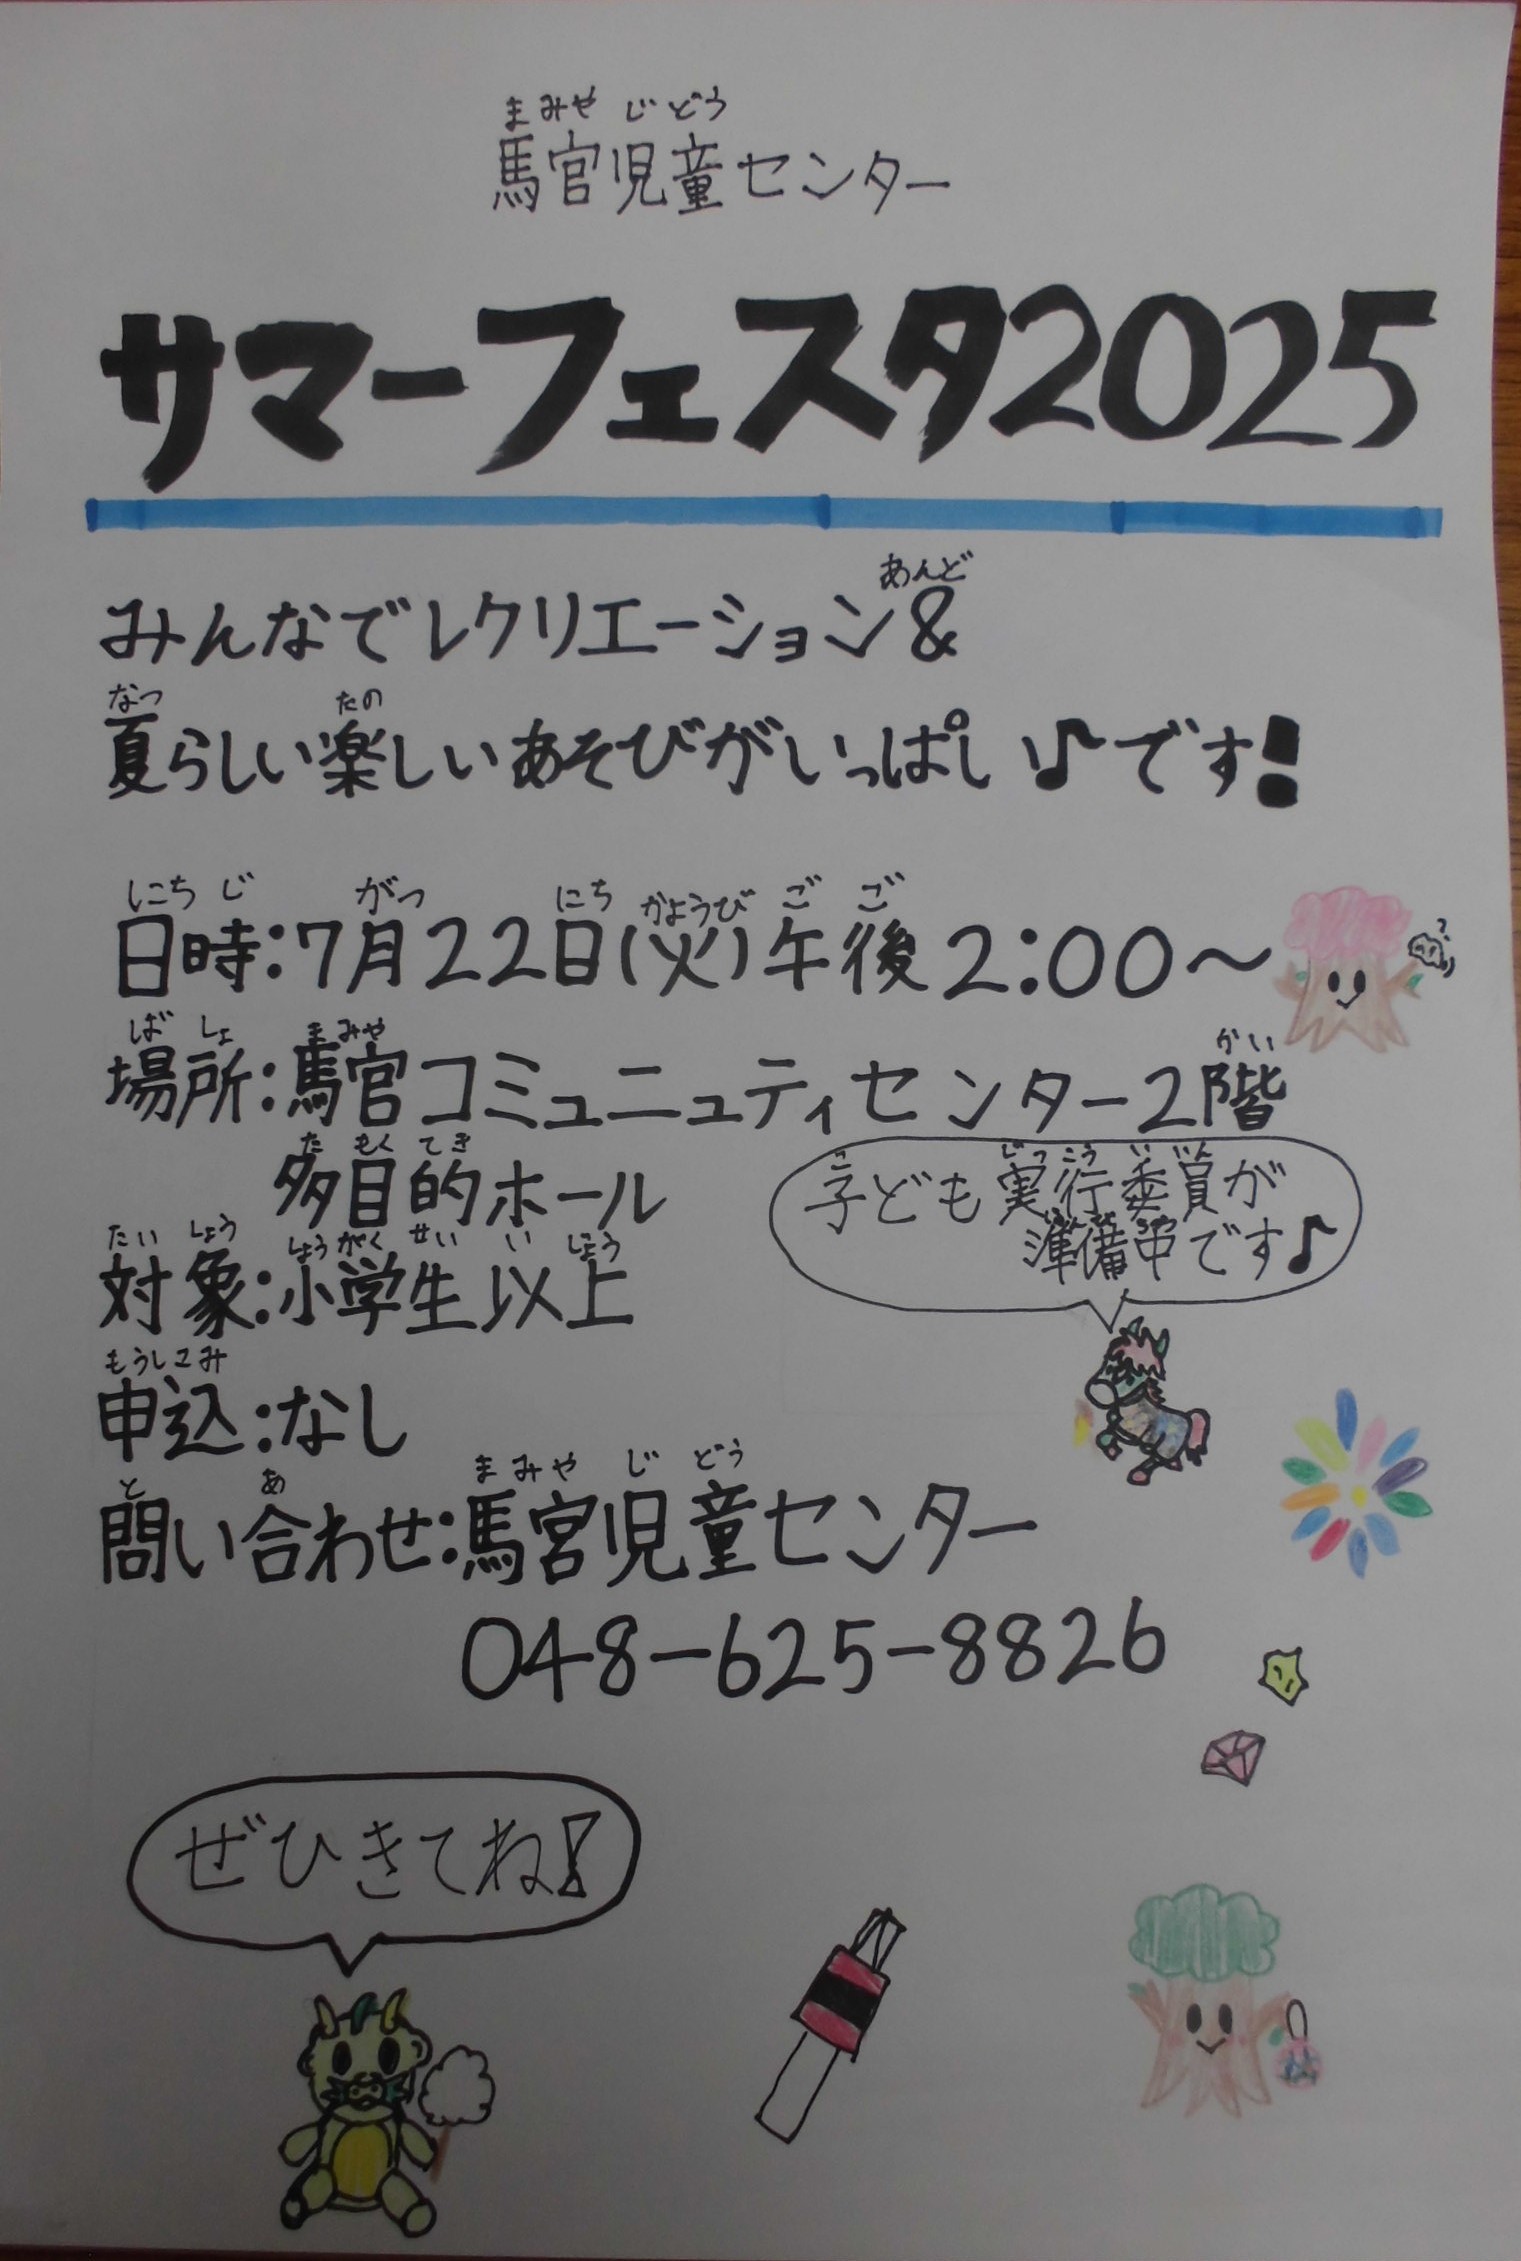 まみや じどう
馬宮児童センター
サマーフェスタ2025
あんど
みんなでレクリエーション&
なつ たの
夏らしい楽しいあそびがいっぱい♪です!
にちじ がつ にち かようび ごご
日時:7月22日(火)午後2:00〜
ばしょ まみや かい
場所:馬宮コミュニュティセンター2階
たもくてき
多目的ホール
こ じっこういいん
子ども実行委員が
じゅんびちゅう
準備中です♪
たいしょう しょうがくせいいじょう
対象:小学生以上
もうしこみ
申込:なし
と あ まみや じどう
問い合わせ:馬宮児童センター
048-625-8826
ぜひきてね!